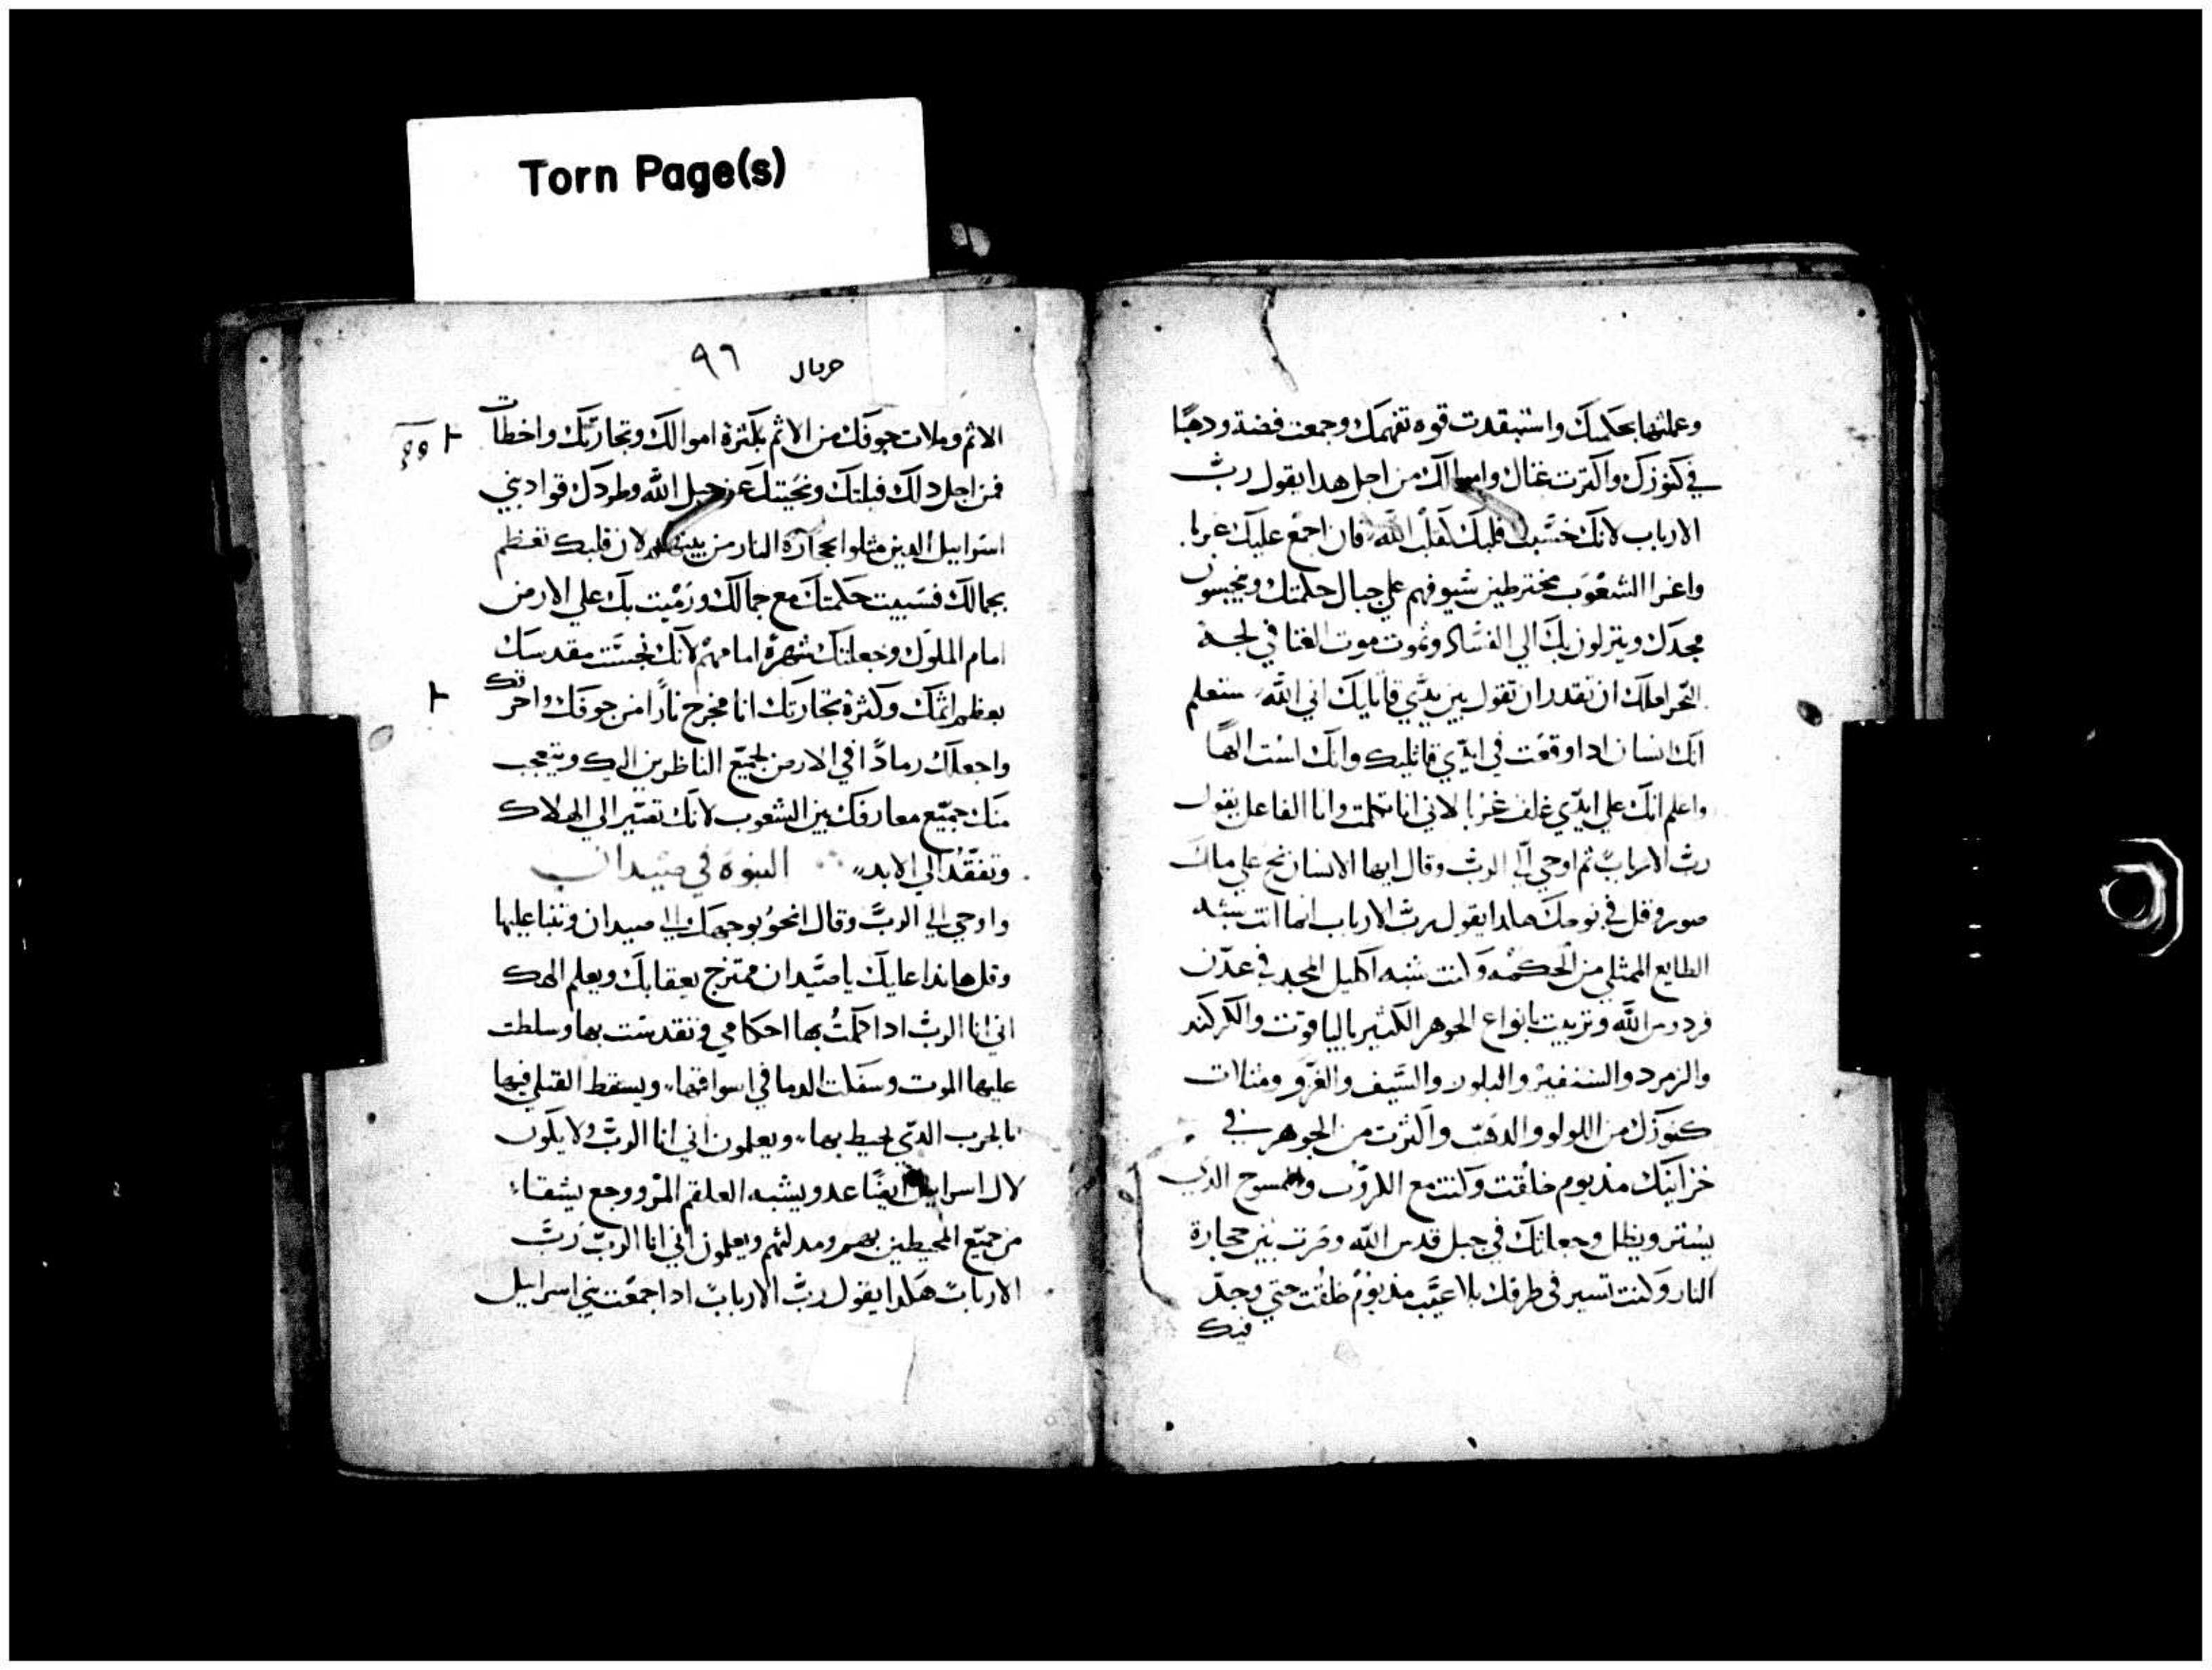 Torn Page(s)
وعملتها بحكمتك واستبقدت قوه تفهمك وجمعت فضة ودهبًا
في كنوزك واكترت غناك واموالك من اجل هدا يقول ربّ
الارباب لانك خسّبت قلبك كقلب اللّه فان اجمع عليك غربا
واعزا الشعوب مخترطين سيوفهم علي جمال حكمتك وينجسون
مجدك وينزلون بك الي الفساد وتموت موت الغتا في لجة
البحر املك ان تقدر ان تقول بين يدي قاتليك اني اللّه ستعلم
انك انسان ادا وقعت في ايدي قاتليك وانك لست الهًا
واعلم انك علي ايدي غلف غربا لاني انا تكلمت وانا الفاعل يقول
ربّ الارباب ثم اوحي اليّ الربّ وقال ايها الانسان نح علي ملك
صور وقل في نوحك هكدا يقول ربّ الارباب انما انت شبه
الطابع الممثلي من الحكمه وكنت شبه اكليل المجد في عدن
فردوس اللّه وتزينت بانواع الجوهر الكثير بالياقوت والكركند
والزمرد والسنفير والبلور والسيف والغزو ومثلات
كنوزك من اللولو والدهب واكثرت من الجوهر في
خزاينك مند يوم خلقت وكنت مع الكروب والمسوح الدي
يستر ويظل وجعلتك في جبل قدس اللّه وصرت بين حجارة
النار وكنت تسير في طرقك بلا عيب مند يوم خلقت حتي وجد
فيك
٩٦
الاثم وملات جوفك من الاثم بكترة اموالك وتجارتك واخطات
فمن اجل دلك قبلتك ونحيتك عن جبل اللّه وطردك قواد بني
اسراييل الدين مثلوا بحجارة النار من بينهم لان قلبك تعظم
بجمالك فسبيت حكمتك مع جمالك ورميت بك علي الارض
امام الملوك وجعلتك شهرة امامهم لانك نجست مقدسك
بعظم اثمك وكثرة تجارتك انا مخرج نارًا من جوفك واحرقك
واجعلك رمادًا في الارض لجميع الناظرين اليك ويتعجب
منك جميع معارفك بين الشعوب لانك تصير الي الهلاك
وتفقد الي الابد النبوة في صيدان
واوحي الي الربّ وقال انحو بوجهك الي صيدان وتنبا عليها
وقل هاندا عليك يا صيدان ممتزج بعقابك ويعلم الهك
اني انا الربّ ادا حكمت بها احكامي وتقدست بها وسلطت
عليها الموت وسفكت الدما في اسواقها ويسقط القتلي فيها
بالحرب الدي يحيط بها ويعلمون اني انا الربّ ولا يكون
لال اسراييل ايضًا عدو يشبه العلقم المرّ ووجع بشقا
من جميع المحيطين بهم ومدلتهم ويعلمون اني انا الربّ ربّ
الارباب هكدا يقول ربّ الارباب ادا جمعت بني اسراييل